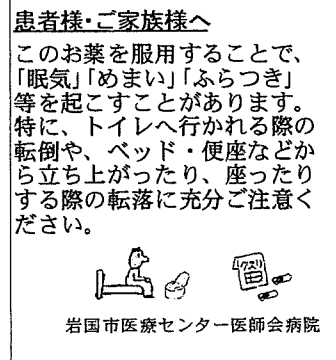 患者様・ご家族様へ
このお薬を服用することで、
「眠気」「めまい」「ふらつき」
等を起こすことがあります。
特に、トイレへ行かれる際の
転倒や、ベッド・便座などか
ら立ち上がったり、座ったり
する際の転落に充分ご注意く
ださい。
クスリ
岩国市医療センター医師会病院